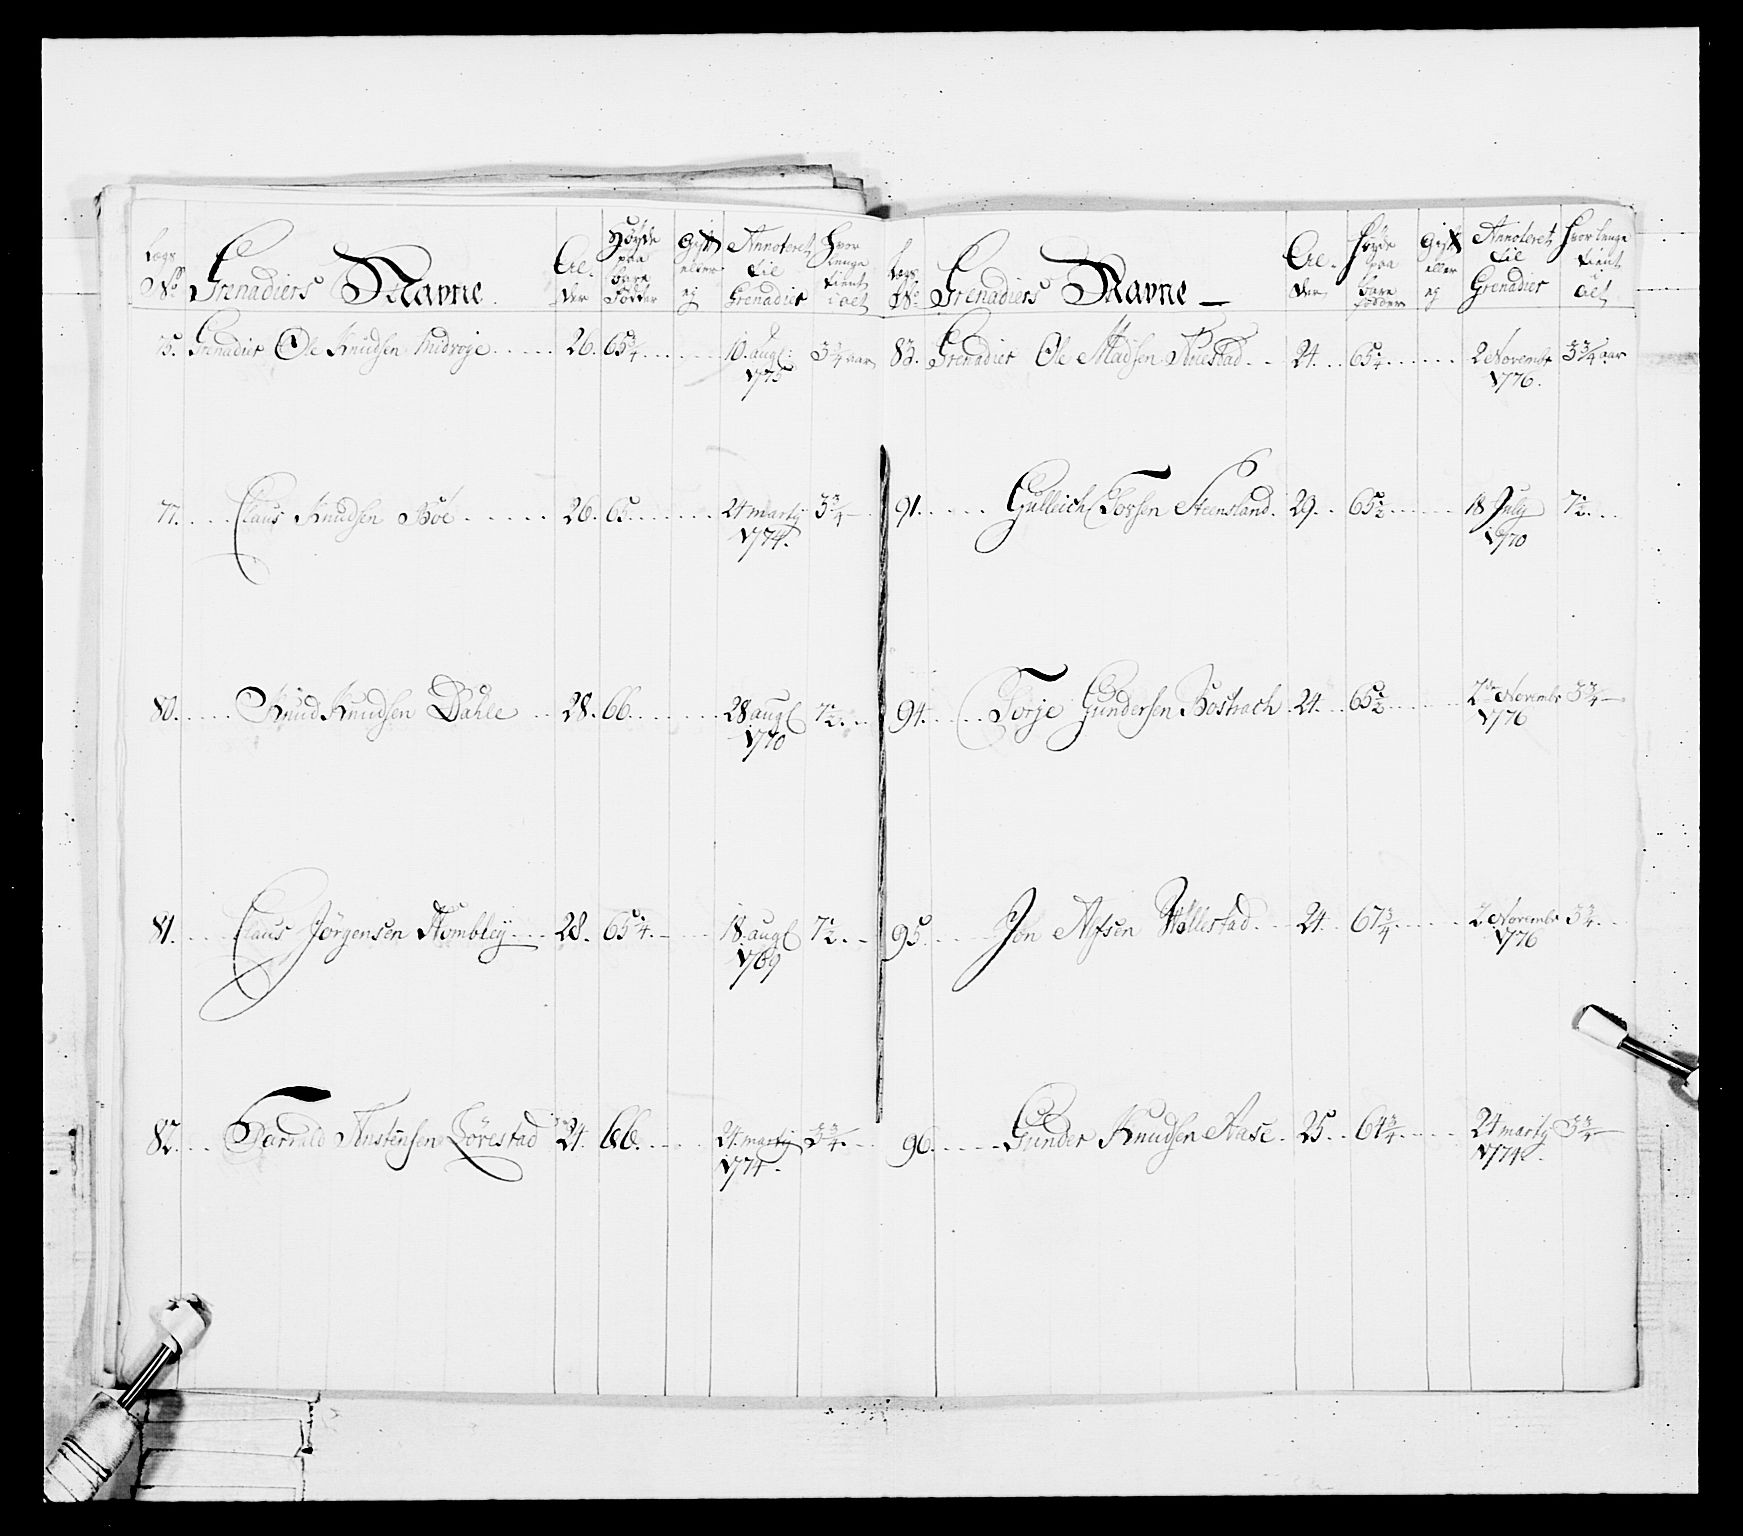 Lægs No Grenadiers Navne Al- der Høyde paa bare Fødder Gift eller ej Annoteret til Grenadier Hvor lenge tient i alt
75. Grenadier Ole Knudsen Midvoje 26. 65 3/4 10. augl: 1775 3 3/4 aar
77. Claus Knudsen Böe 26. 65 24 martij 1774. 3 3/4
80. Knud Knudsen Dahle 28. 66. 28 augl 1770 7 1/2
81. Claus Jörgensen Hombley 28. 65 1/4 18. augl 1769 7 1/2
82. Tarrald Anstensen Lörestad 24. 66. 24. martij 1774. 3 3/4
Lægs No Grenadiers Navne Al- der Høyde paa bare Fødder Gift eller ej Annoteret til Grenadier Hvor lenge tient i alt
83. Grenadier Ole Madsen 24 65 1/4 2 Novembr 1776. 3 3/4 aar
91. Gulleich Torsen Steensland. 29 65 1/2 18 July 1770 7 1/2
94. Torje Gundersen Bostrach 24. 65 1/2 2den Novembr 1776 3 3/4
95. Jon Alfsen Hollestad 24. 67 3/4 2 Novembr 1776 3 3/4
96. Gunder Knudsen Aase 25 64 3/4 24 martij 1774. 3 3/4